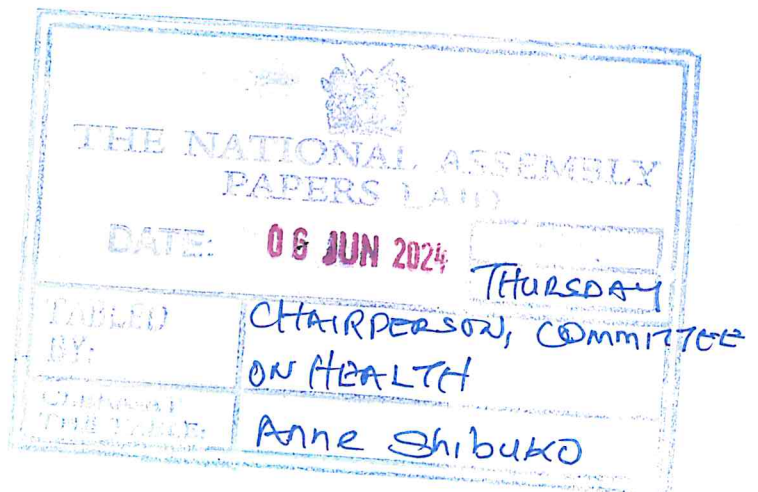 THE NATIONAL ASSEMBLY
PAPERS LAID
DATE: 06 JUN 2024
THURSDAY
TABLED BY: CHAIRPERSON, COMMITTEE
ON HEALTH
CLERK AT THE TABLE: Anne Shibuko